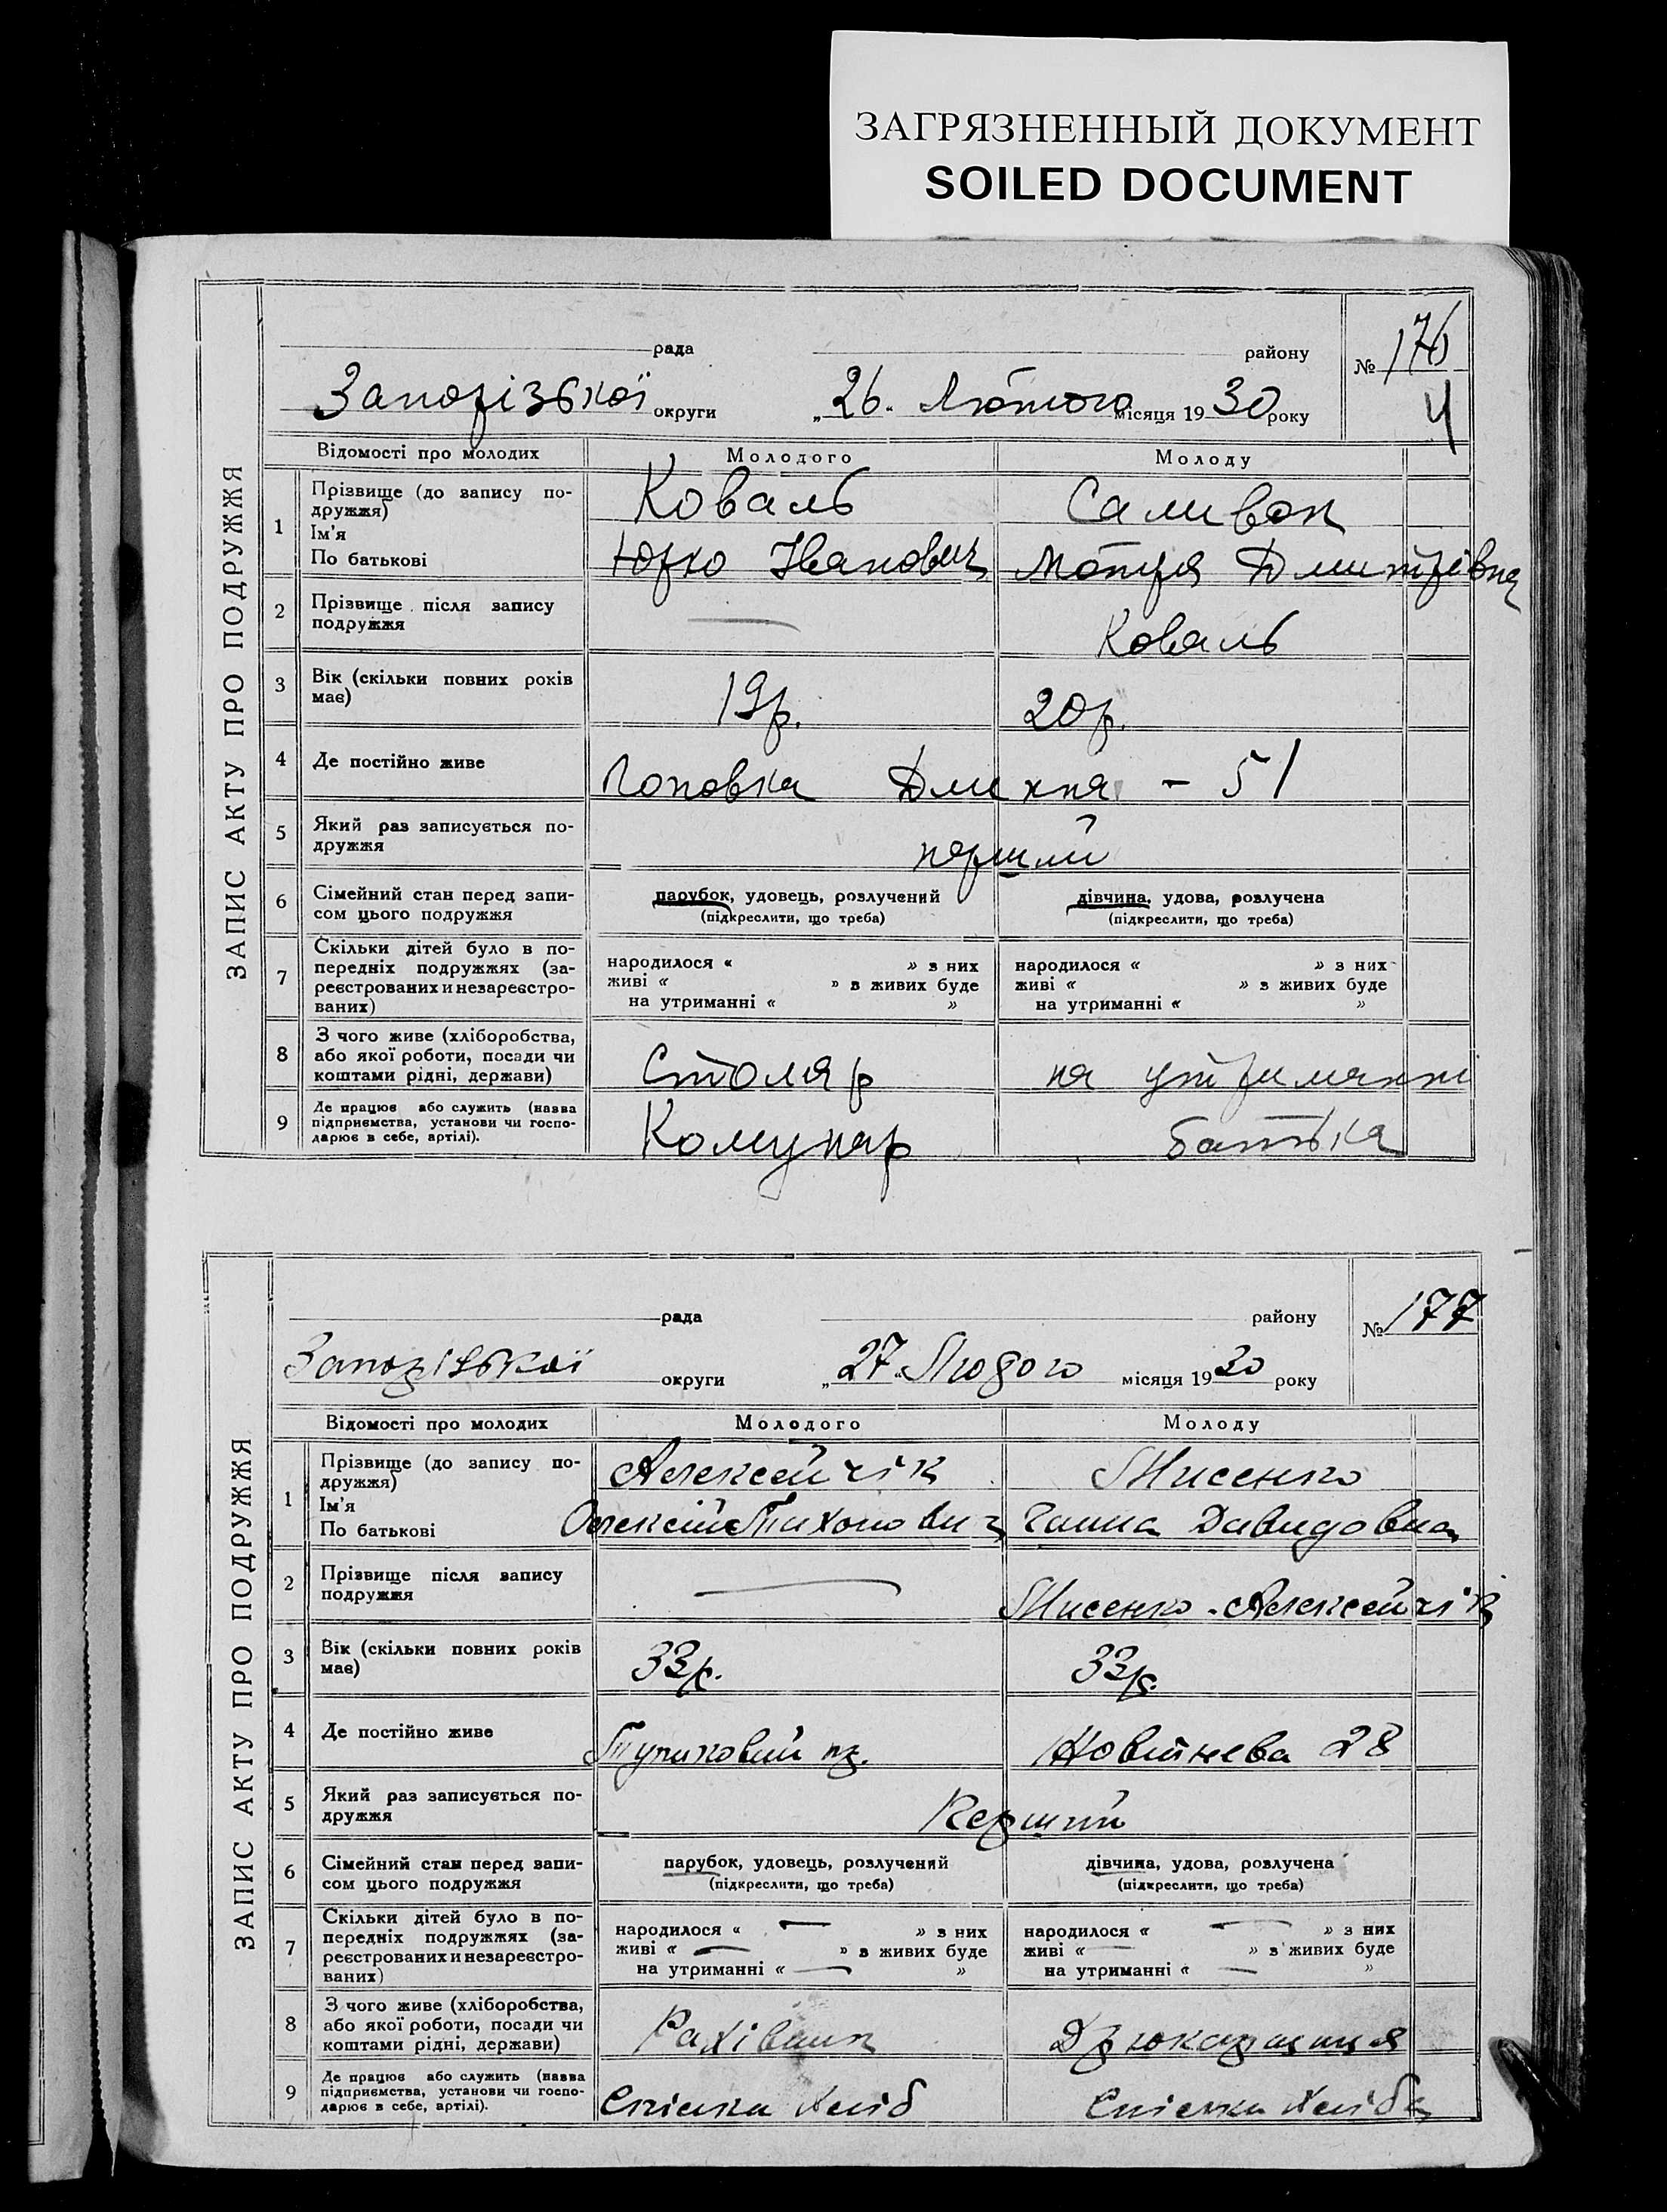 ЗАГРЯЗНЕННЫЙ ДОКУМЕНТ
SOILED DOCUMENT
ЗАПИС АКТУ ПРО ПОДРУЖЖЯ
рада
району
№ 176
Запорізької округи
„26" Лютого місяця 1930 року
Ч
Відомості про молодих
Молодого
Молоду
1
Прізвище (до запису по-
дружжя)
Ім'я
По батькові
Коваль
Юрко Іванович
Саливон
Мотря Дмитрівна
2
Прізвище після запису
подружжя
—
Коваль
3
Вік (скільки повних років
має)
19р.
20р.
4
Де постійно живе
- 51
5
Який раз записується по-
дружжя
перший
6
Сімейний стан перед запи-
сом цього подружжя
парубок, удовець, розлучений
(підкреслити, що треба)
дівчина, удова, розлучена
(підкреслити, що треба)
7
Скільки дітей було в по-
передніх подружжях (за-
реєстрованих и незареєстро-
ваних)
народилося « » з них
живі « » в живих буде
на утриманні « »
народилося « » з них
живі « » в живих буде
на утриманні « »
8
З чого живе (хліборобства,
або якої роботи, посади чи
коштами рідні, держави)
Столяр
на утриманні
9
Де працює або служить (назва
підприємства, установи чи госпо-
дарює в себе, артілі).
Комунар
батька
ЗАПИС АКТУ ПРО ПОДРУЖЖЯ
рада
району
№ 177
Запорізької округи
„27" Лютого місяця 1930 року
Відомості про молодих
Молодого
Молоду
1
Прізвище (до запису по-
дружжя)
Ім'я
По батькові
Алексейчік
Олексій Тихонович
Мисенко
Ганна Давидовна
2
Прізвище після запису
подружжя
—
Мисенко-Алексейчік
3
Вік (скільки повних років
має)
33р.
33р.
4
Де постійно живе
Тупиковий пр.
28
5
Який раз записується по-
дружжя
Перший
6
Сімейний стан перед запи-
сом цього подружжя
парубок, удовець, розлучений
(підкреслити, що треба)
дівчина, удова, розлучена
(підкреслити, що треба)
7
Скільки дітей було в по-
передніх подружжях (за-
реєстрованих и незареєстро-
ваних)
народилося « — » з них
живі « — » в живих буде
на утриманні « — »
народилося « — » з них
живі « — » в живих буде
на утриманні « — »
8
З чого живе (хліборобства,
або якої роботи, посади чи
коштами рідні, держави)
Рахівник
Друкарщиця
9
Де працює або служить (назва
підприємства, установи чи госпо-
дарює в себе, артілі).
Спілка Хліб
Спілка Хліба